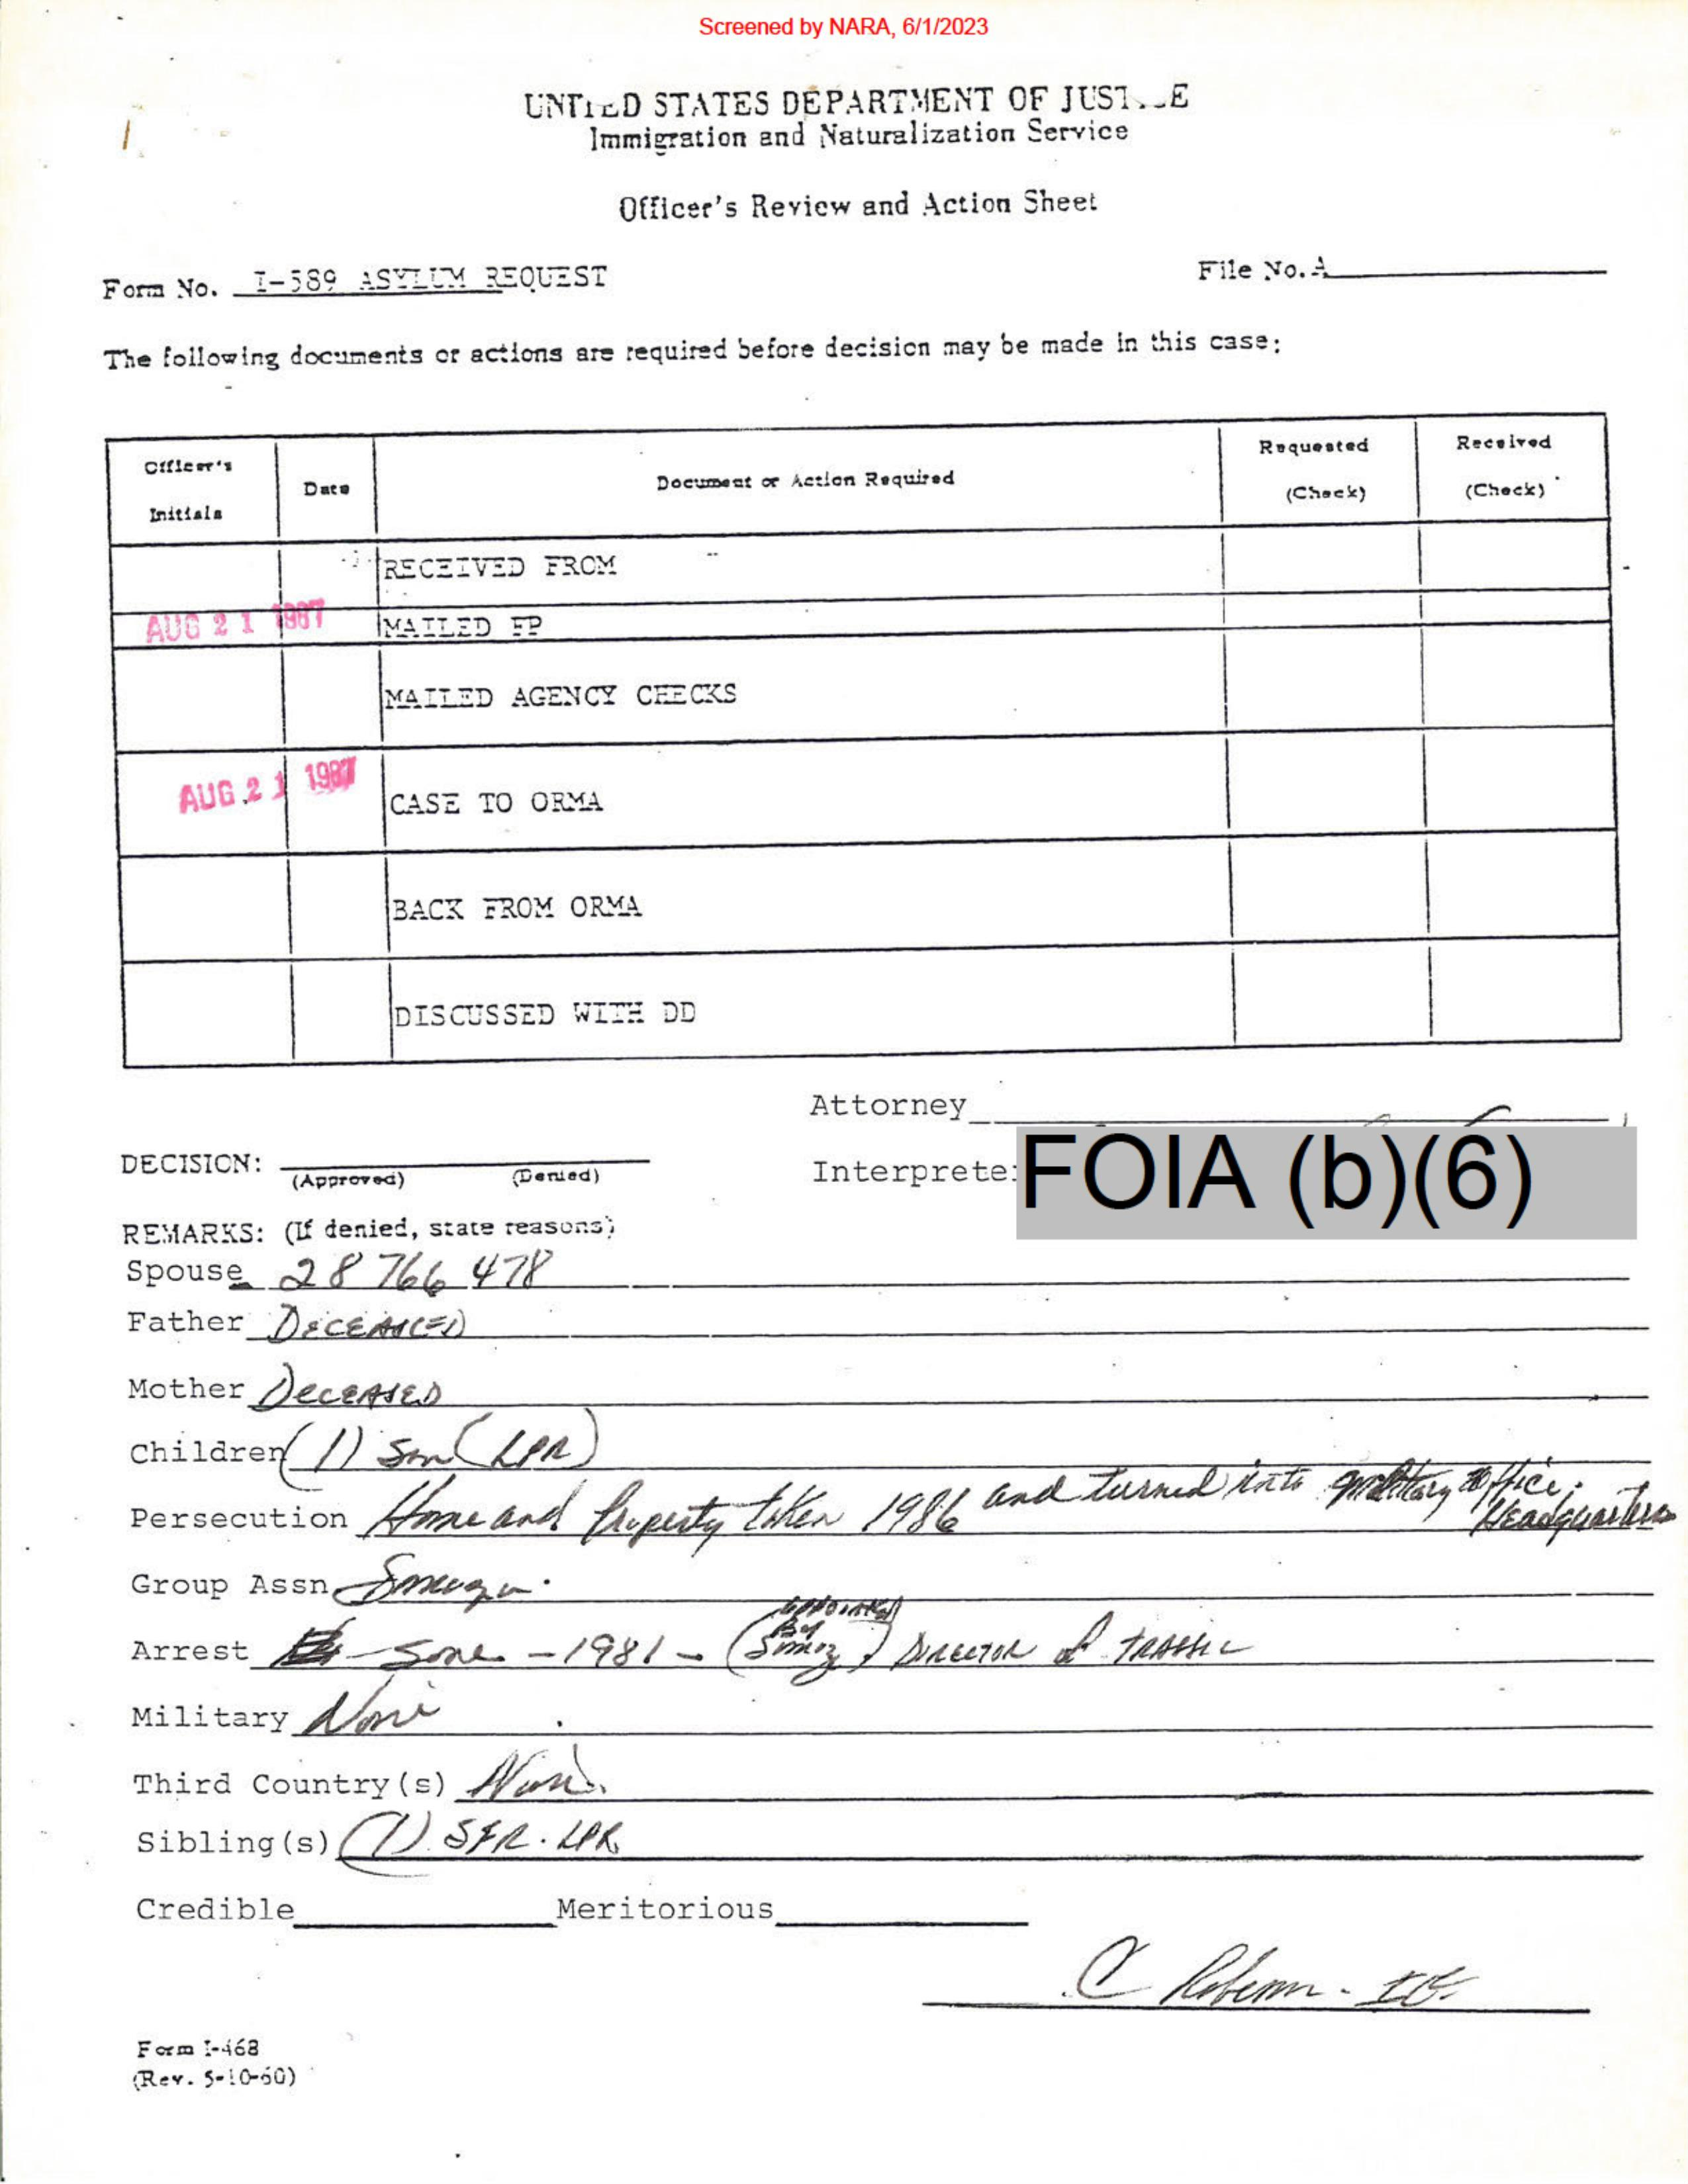 Screened by NARA, 6/1/2023
UNITED STATES DEPARTMENT OF JUST...E
Immigration and Naturalization Service
Officer's Review and Action Sheet
Form No. I-589 ASYLUM REQUEST
File No. A
The following documents or actions are required before decision may be made in this case:
Officer's Initials
Date
Document or Action Required
Requested (Check)
Received (Check)
RECEIVED FROM
AUG 21 1987 MAILED FP
MAILED AGENCY CHECKS
AUG 21 1987 CASE TO ORMA
BACK FROM ORMA
DISCUSSED WITH DD
Attorney
DECISION:
(Approved) (Denied)
Interprete
FOIA (b)(6)
REMARKS: (If denied, state reasons)
Spouse 28 766 478
Father DECEASED
Mother DECEASED
Children (1) Son (LPR)
Persecution Home and Property taken 1986 and turned into military office Headquarters
Group Assn
Arrest - 1981 - (appointed By ) DIRECTOR of TRAFFIC
Military None
Third Country(s) None
Sibling(s) (1) LPR
Credible Meritorious
C
Form I-468
(Rev. 5-10-60)